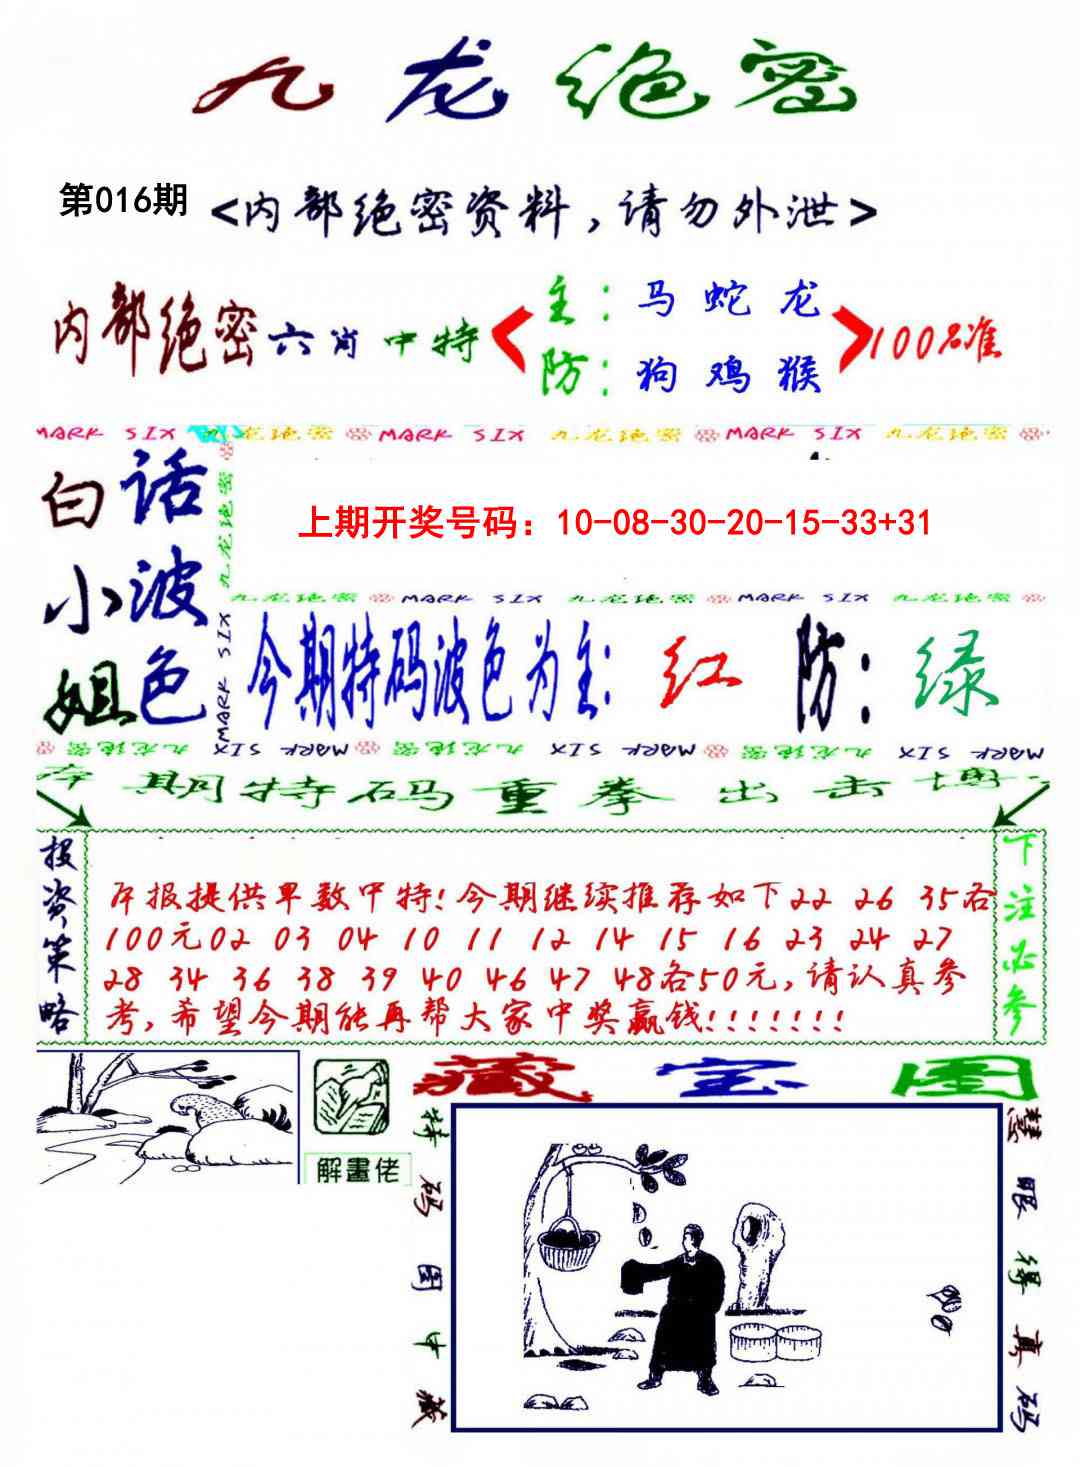 九龙绝密
第016期 <内部绝密资料，请勿外泄>
内部绝密六肖中特
主：马 蛇 龙
防：狗 鸡 猴
100%准
MARK SIX 九龙绝密 MARK SIX 九龙绝密 MARK SIX 九龙绝密
白话小波姐色
九龙绝密 MARK SIX
上期开奖号码：10-08-30-20-15-33+31
九龙绝密 MARK SIX 九龙绝密 MARK SIX 九龙绝密
今期特码波色为主：红 防：绿
九龙绝密 MARK SIX 九龙绝密 MARK SIX 九龙绝密 MARK SIX
本期特码重拳出击博
投资策略
年报提供单数中特!今期继续推荐如下22 26 35各
100元02 03 04 10 11 12 14 15 16 23 24 27
28 34 36 38 39 40 46 47 48各50元,请认真参
考,希望今期能再帮大家中奖赢钱!!!!!!!
下注必参
解畫佬
藏宝图
特码图中藏
慧眼得真码